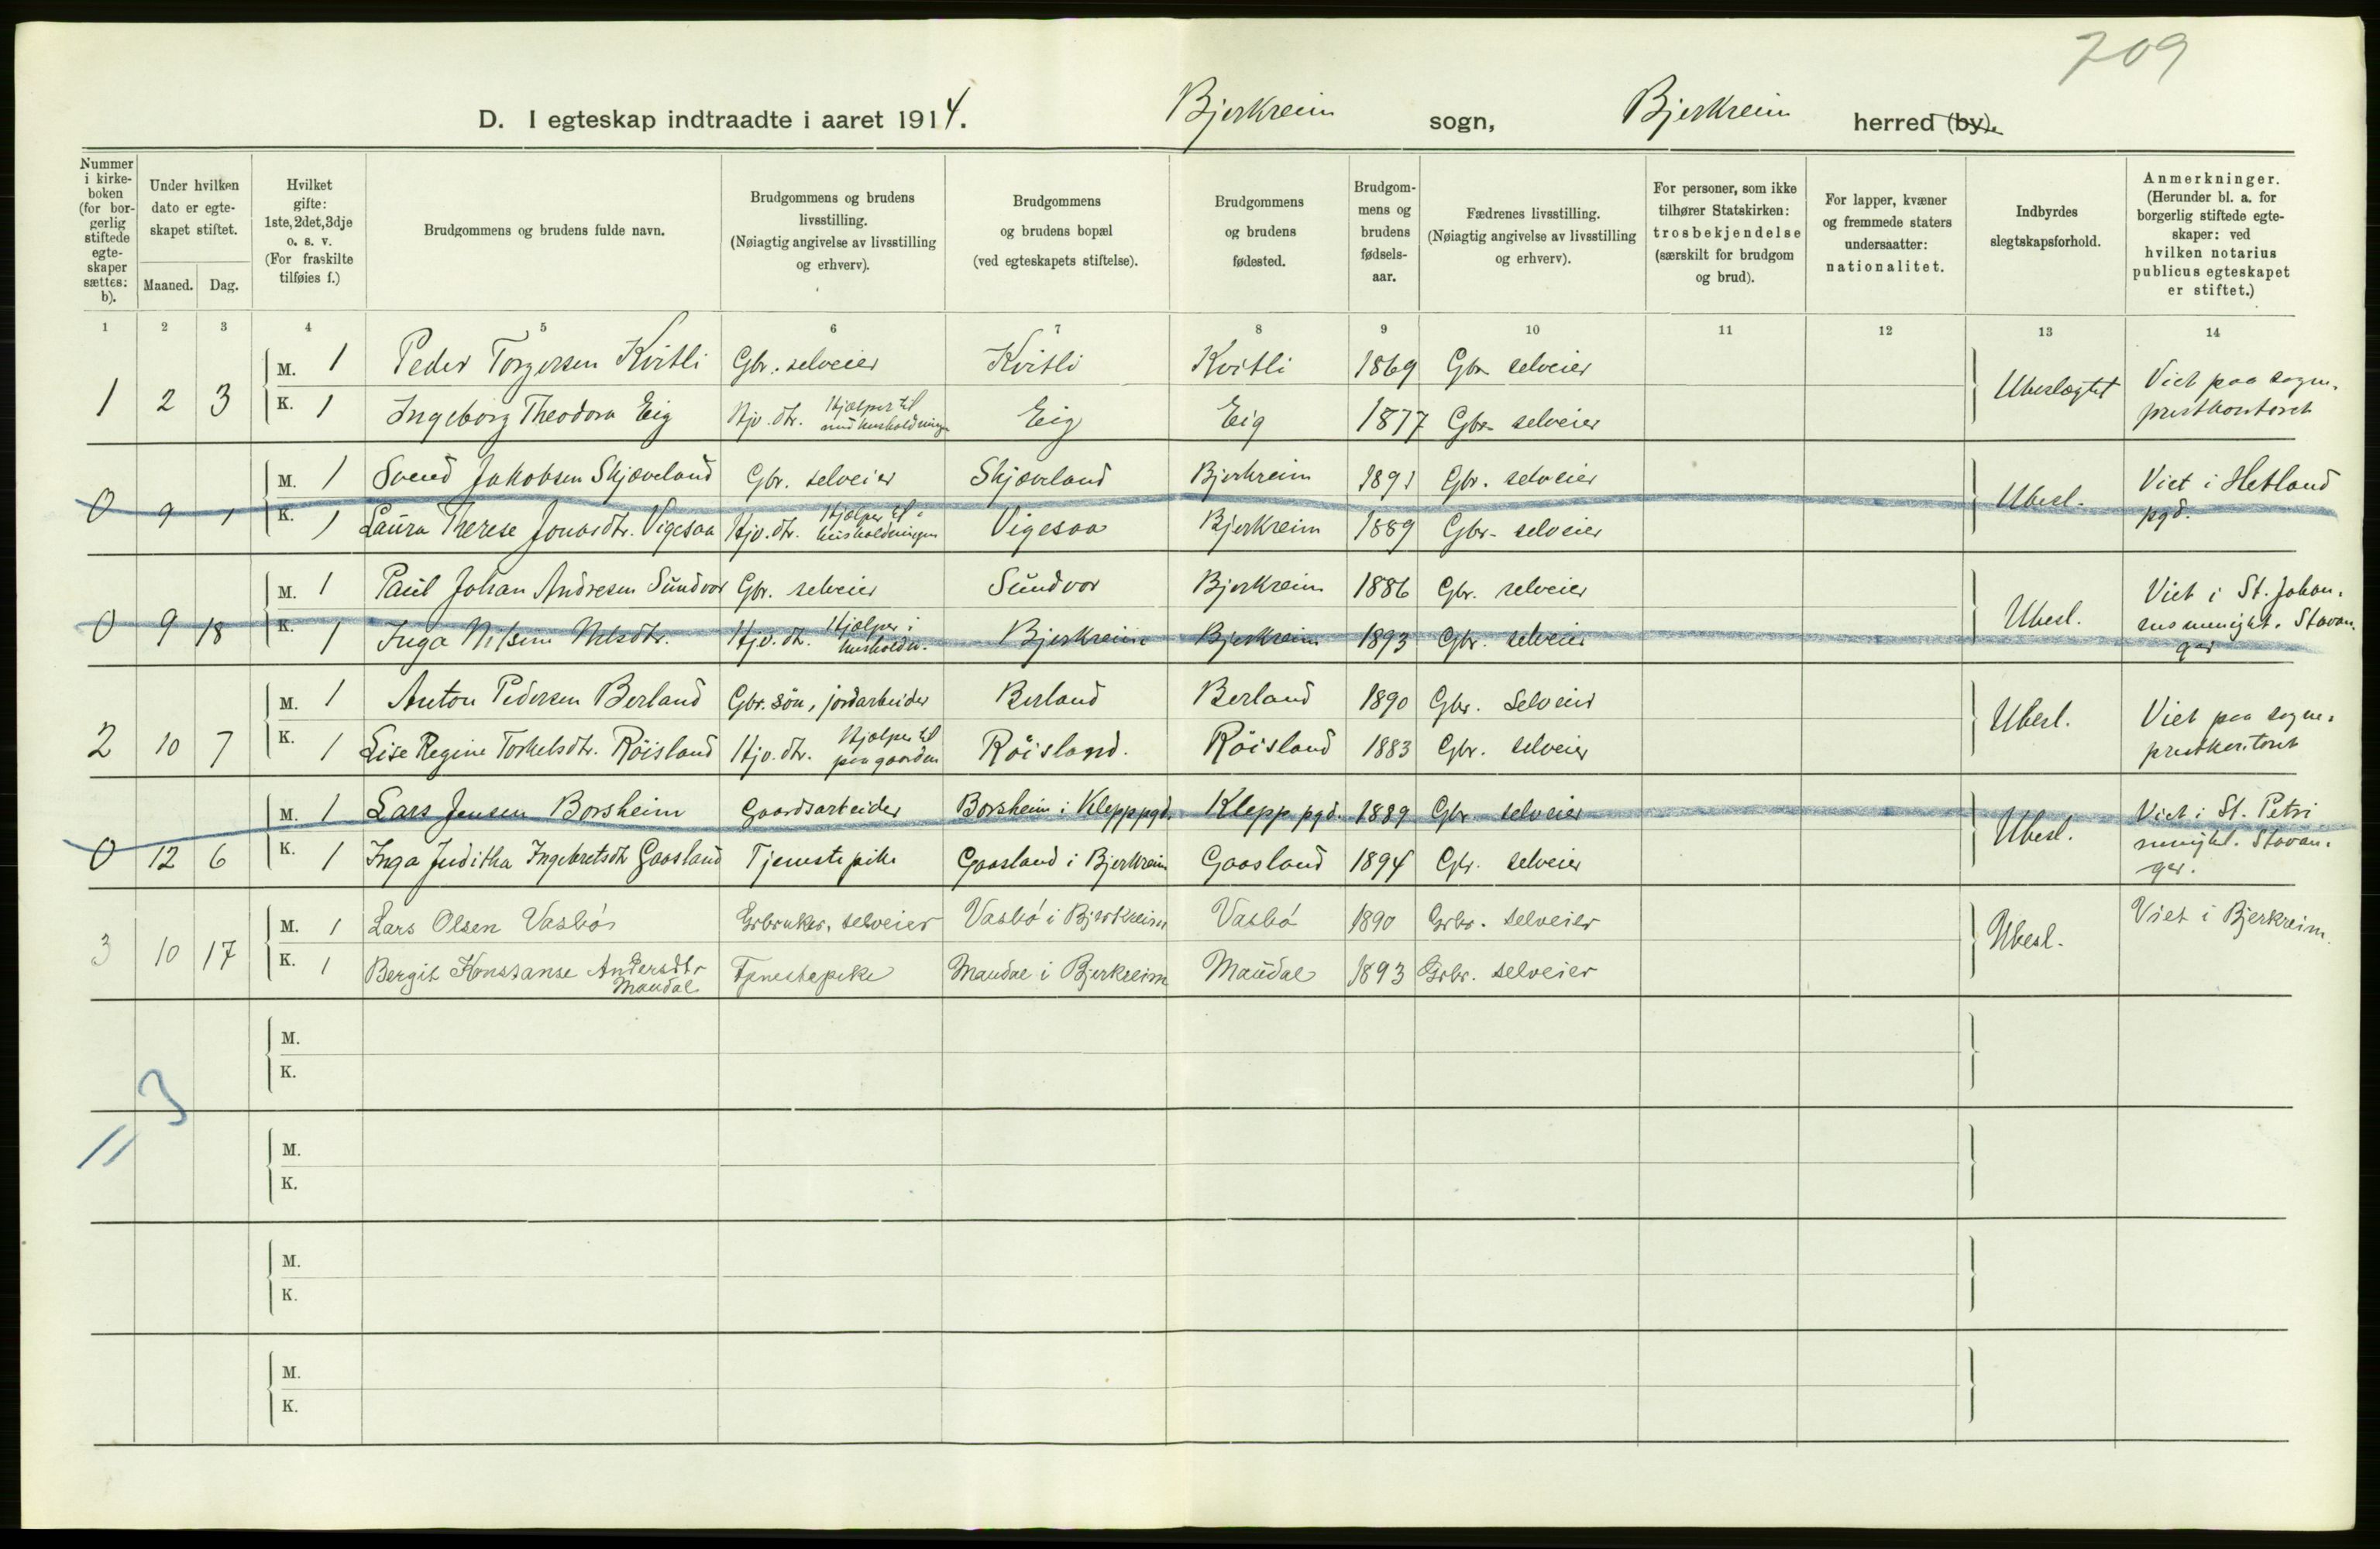 709
D. I egteskap indtraadte i aaret 1914. Bjerkreim sogn, Bjerkreim herred (by).
Nummer i kirkeboken (for borgerlig stiftede egteskaper sættes: b).
Under hvilken dato er egteskapet stiftet.
Maaned. Dag.
Hvilket gifte: 1ste, 2det, 3dje o. s. v. (For fraskilte tilføies f.)
Brudgommens og brudens fulde navn.
Brudgommens og brudens livsstilling. (Nøiagtig angivelse av livsstilling og erhverv).
Brudgommens og brudens bopæl (ved egteskapets stiftelse).
Brudgommens og brudens fødested.
Brudgommens og brudens fødselsaar.
Fædrenes livsstilling. (Nøiagtig angivelse av livsstilling og erhverv).
For personer, som ikke tilhører Statskirken: trosbekjendelse (særskilt for brudgom og brud).
For lapper, kvæner og fremmede staters undersaatter: nationalitet.
Indbyrdes slegtskapsforhold.
Anmerkninger. (Herunder bl. a. for borgerlig stiftede egteskaper: ved hvilken notarius publicus egteskapet er stiftet.)
1 2 3 4 5 6 7 8 9 10 11 12 13 14
M. 1 Peder Torgersen Kvitli Gbr. selveier Kvitli Kvitli 1869 Gbr. selveier
1 2 3 Ubeslegtet Viet paa sogneprestkontoret
K. 1 Ingeborg Theodora Eig Hjv. dtr. Hjælper til med husholdningen Eig Eig 1877 Gbr. selveier
M. 1 Svend Jakobsen Skjæveland Gbr. selveier Skjæveland Bjerkreim 1891 Gbr. selveier
0 9 1 Ubesl. Viet i Hetland pgd.
K. 1 Laura Therese Jonasdtr. Vigesaa Hjv. dtr. Hjælper til i husholdningen Vigesaa Bjerkreim 1889 Gbr. selveier
M. 1 Paul Johan Andresen Sundvor Gbr. selveier Sundvor Bjerkreim 1886 Gbr. selveier
0 9 18 Ubesl. Viet i St. Johannes menight. Stavanger
K. 1 Inga Nilsine Nilsdtr. Hjv. dtr. Hjælper i husholdn. Bjerkreim Bjerkreim 1893 Gbr. selveier
M. 1 Anton Pedersen Berland Gbr. søn, jordarbeider Berland Berland 1890 Gbr. Selveier
2 10 7 Ubesl. Viet paa sogneprestkontoret
K. 1 Lise Regine Torkelsdtr. Röisland Hjv. dtr. Hjælper til paa gaarden Röisland. Röisland 1883 Gbr. selveier
M. 1 Lars Jensen Borsheim Gaardsarbeider Borsheim i Klepp pgd. Klepp pgd. 1889 Gbr. selveier
0 12 6 Ubesl. Viet i St. Petri menight. Stavanger.
K. 1 Inga Juditha Ingebretsdtr Gaasland Tjenestepike Gaasland i Bjerkreim Gaasland 1894 Gbr. selveier
M. 1 Lars Olsen Vasbø Grbruker, selveier Vasbø i Bjerkreim Vasbø 1890 Grbr. selveier
3 10 17 Ubesl. Viet i Bjerkreim.
K. 1 Bergit Konstanse Andersdtr Maudal Tjenestepike Maudal i Bjerkreim Maudal 1893 Grbr. selveier
M.
K.
3
M.
K.
M.
K.
M.
K.